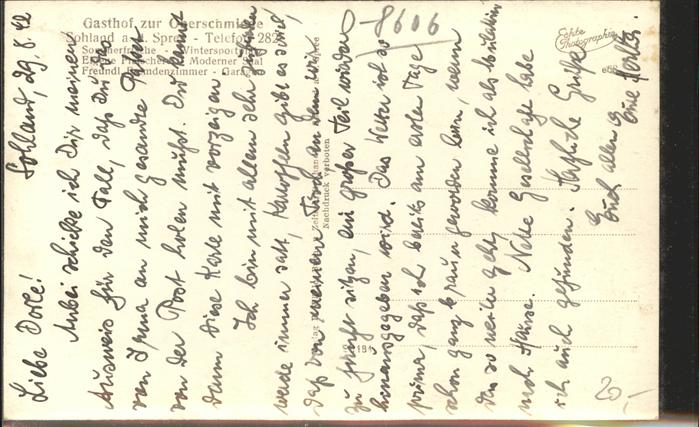 Gasthof zur Oberschmiede
Sohland a. d. Spree - Telefon 282
Sommerfrische - Wintersport
Eigene Fleischerei Moderner Saal
Freundl. Fremdenzimmer - Garage
Echte Photographie
Nachdruck verboten
8606
20,-
Sohland, 29. 8. 42
Liebe Dore!
Anbei schicke ich Dir meinen
Ausweis für den Fall, daß Du das
von Irma an mich gesandte Paket
von der Post holen mußt. Du kannst
dann diese Karte mit vorzeigen.
Ich bin mit allem sehr zufrieden,
werde immer satt, Kartoffeln gibt es soviel,
daß von meinem Tisch, an dem wir
zu fünft sitzen, ein großer Teil wieder
herausgegeben wird. Das Wetter ist so
prima, daß ich bereits am ersten Tage
schon ganz braun geworden bin, wenn
das so weiter geht, komme ich als
nach Hause. Nette Gesellschaft habe
ich auch gefunden. Herzliche Grüße
Euch allen
Eure